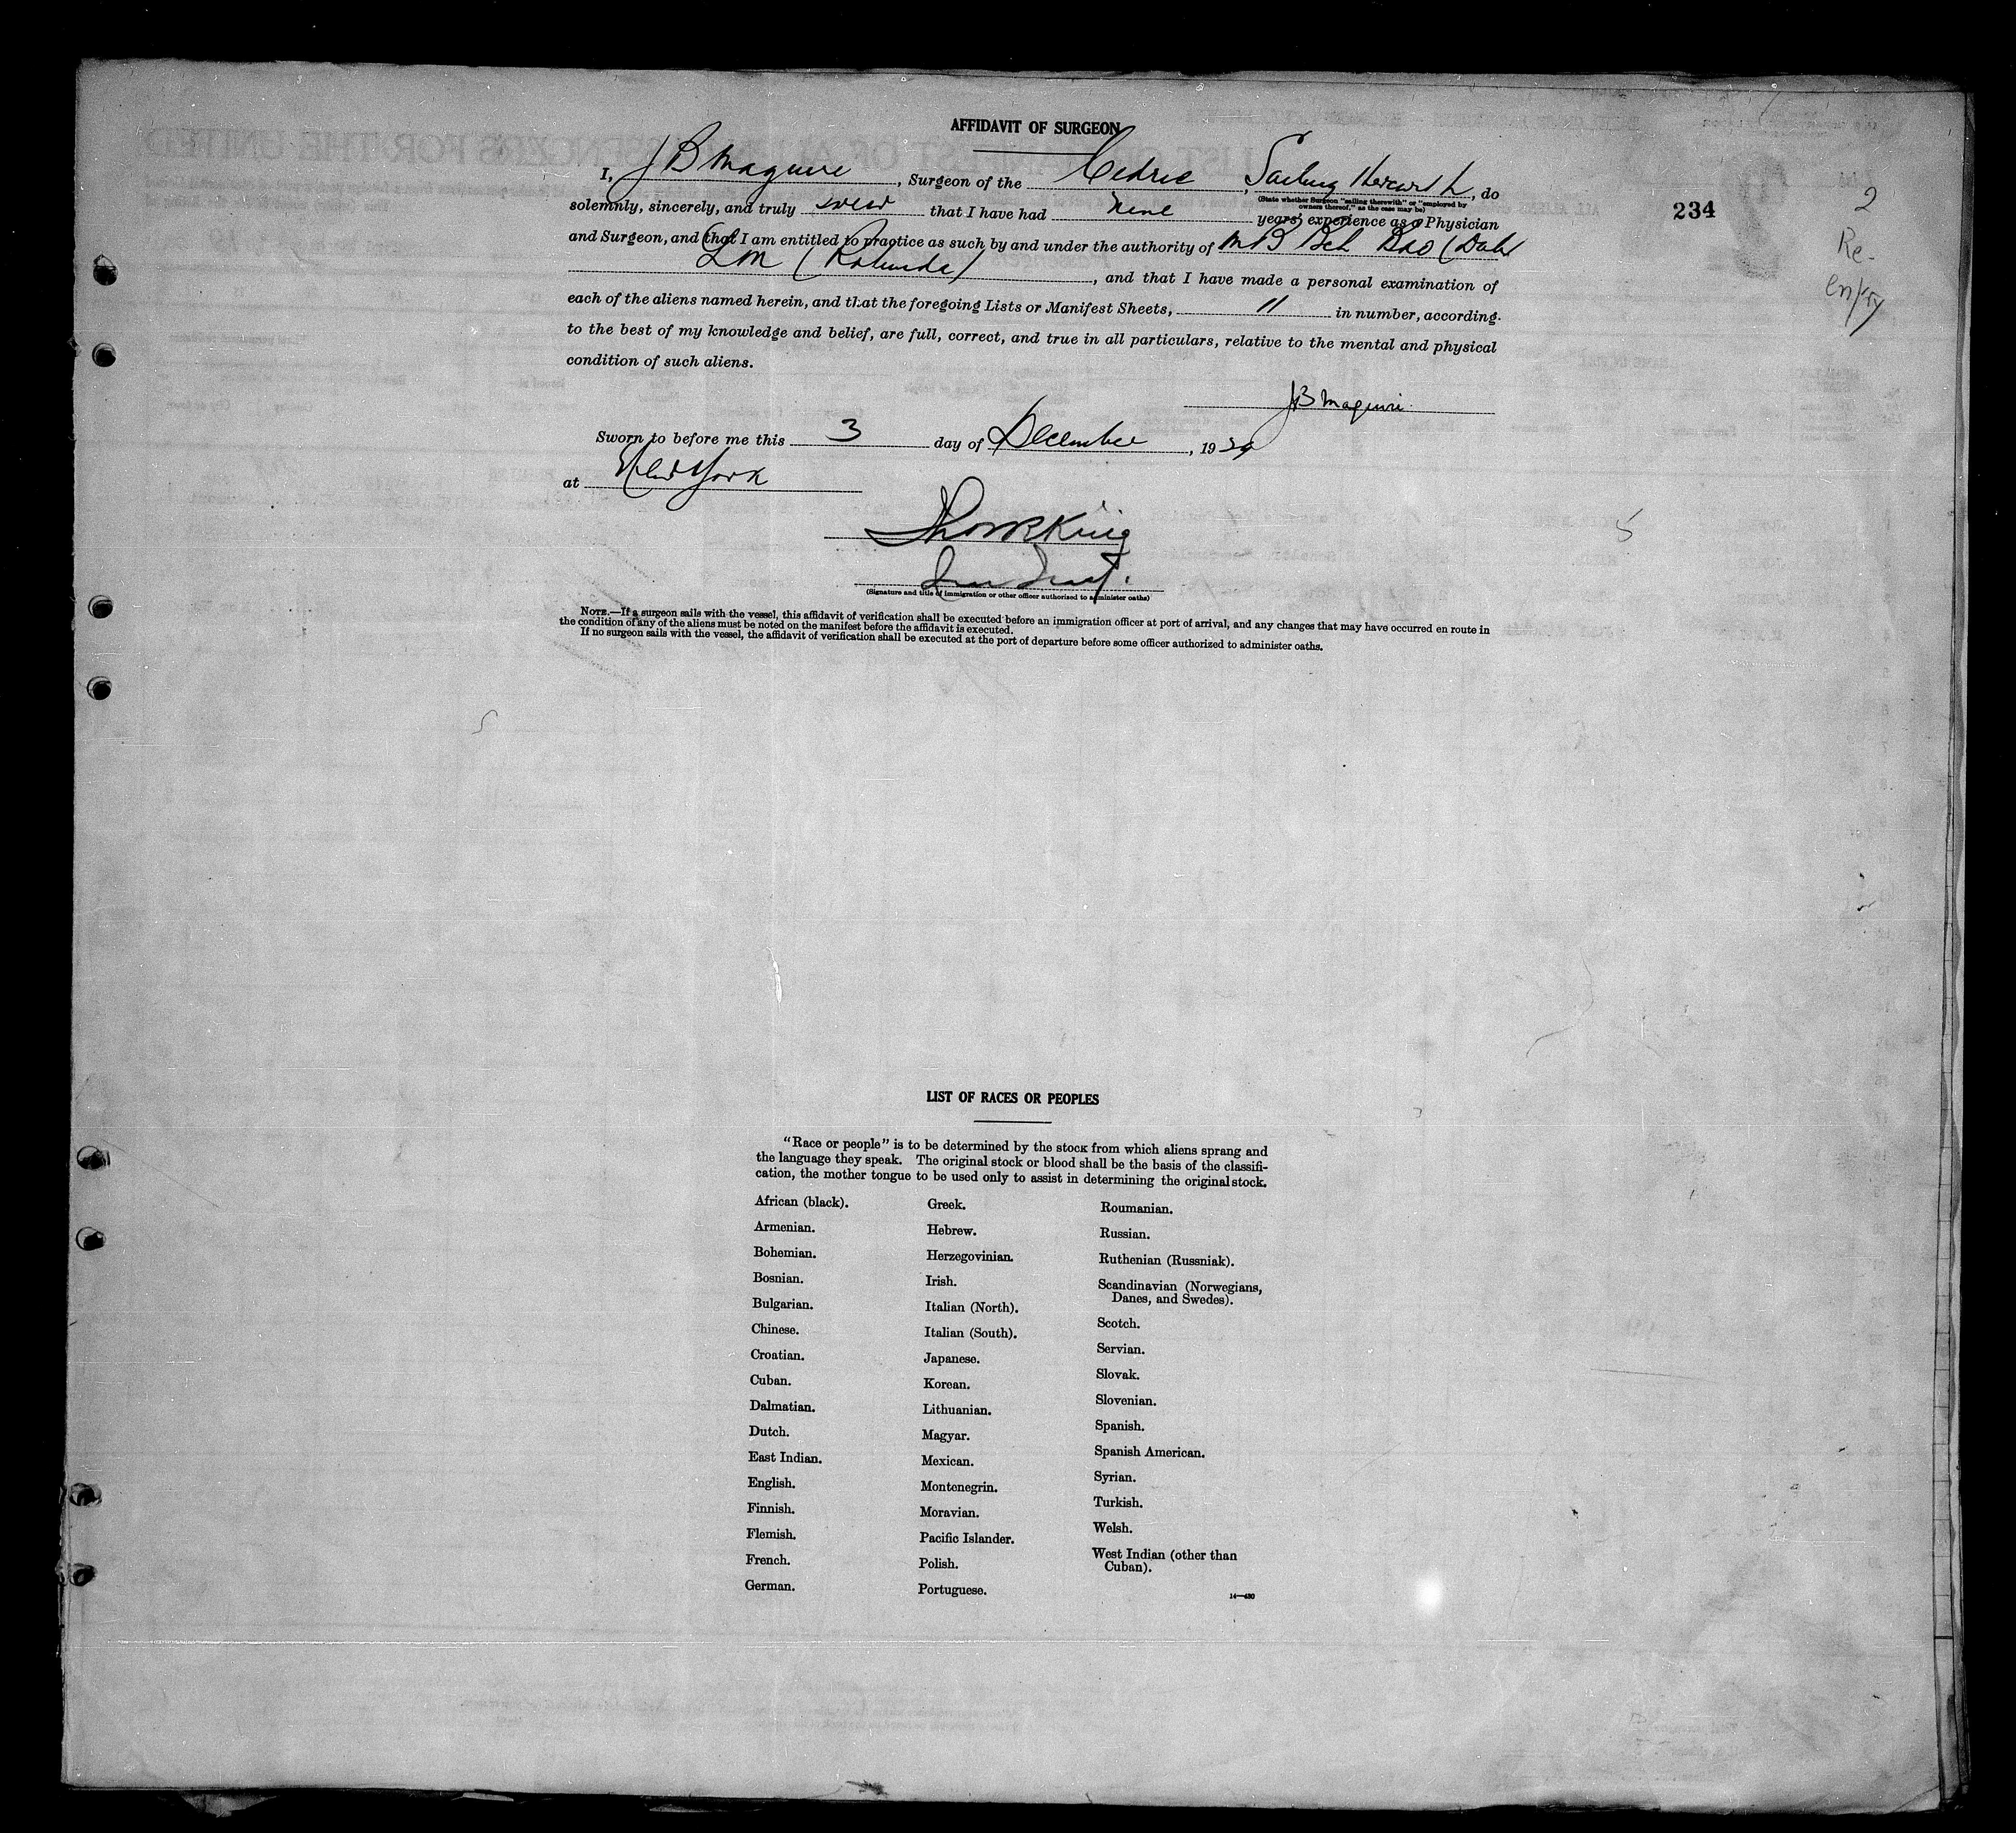 AFFIDAVIT OF SURGEON
I, J B Maguire, Surgeon of the Cedric, Sailing therewith, do
(State whether Surgeon "sailing therewith" or "employed by
owners thereof," as the case may be)
solemnly, sincerely, and truly swear that I have had nine years' experience as a Physician
and Surgeon, and that I am entitled to practice as such by and under the authority of MB Bch BAO (Dub)
LM (Rotunda), and that I have made a personal examination of
each of the aliens named herein, and that the foregoing Lists or Manifest Sheets, 11 in number, according
to the best of my knowledge and belief, are full, correct, and true in all particulars, relative to the mental and physical
condition of such aliens.
JB Maguire
Sworn to before me this 3 day of December, 19
at New York
King
Insp.
(Signature and title of immigration or other officer authorized to administer oaths)
NOTE.—If a surgeon sails with the vessel, this affidavit of verification shall be executed before an immigration officer at port of arrival, and any changes that may have occurred en route in
the condition of any of the aliens must be noted on the manifest before the affidavit is executed.
If no surgeon sails with the vessel, the affidavit of verification shall be executed at the port of departure before some officer authorized to administer oaths.
234
2
Re-
entry
5
LIST OF RACES OR PEOPLES
"Race or people" is to be determined by the stock from which aliens sprang and
the language they speak. The original stock or blood shall be the basis of the classifi-
cation, the mother tongue to be used only to assist in determining the original stock.
African (black).
Armenian.
Bohemian.
Bosnian.
Bulgarian.
Chinese.
Croatian.
Cuban.
Dalmatian.
Dutch.
East Indian.
English.
Finnish.
Flemish.
French.
German.
Greek.
Hebrew.
Herzegovinian.
Irish.
Italian (North).
Italian (South).
Japanese.
Korean.
Lithuanian.
Magyar.
Mexican.
Montenegrin.
Moravian.
Pacific Islander.
Polish.
Portuguese.
Roumanian.
Russian.
Ruthenian (Russniak).
Scandinavian (Norwegians,
Danes, and Swedes).
Scotch.
Servian.
Slovak.
Slovenian.
Spanish.
Spanish American.
Syrian.
Turkish.
Welsh.
West Indian (other than
Cuban).
14—430